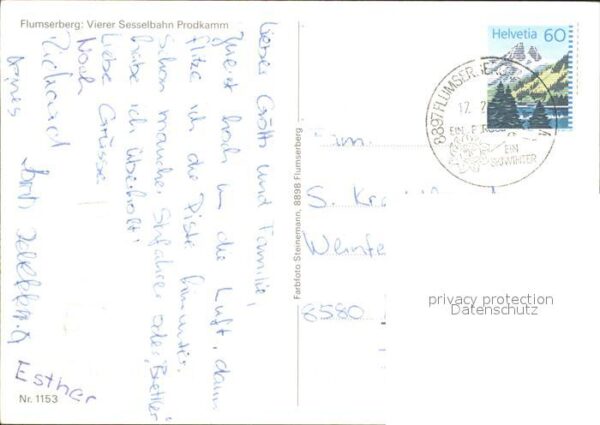 Flumserberg: Vierer Sesselbahn Prodkamm
Lieber Götti und Familie,
Zuerst hoch in die Luft, dann
flitze ich die Piste hinunter.
Schon mancher Skifahrer oder "Brettler"
habe ich überholt!
Liebe Grüsse
Noah
Richard
Agnes
Esther
Nr. 1153
Farbfoto Steinemann, 8898 Flumserberg
Helvetia 60
8897 FLUMSERBERG
17. 2.
EIN
SKIWINTER
Fam.
S.
8580
privacy protection
Datenschutz